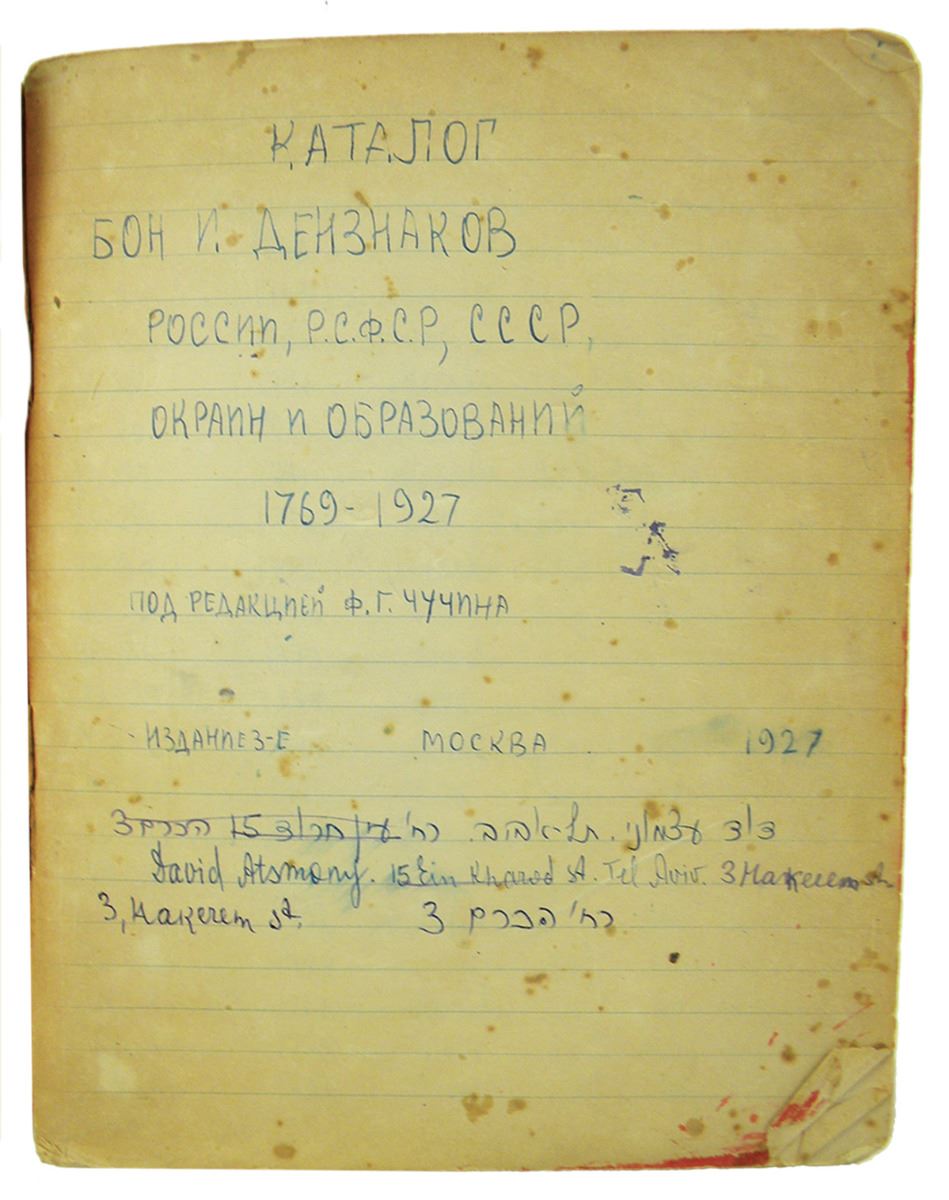 КАТАЛОГ
БОН И ДЕНЗНАКОВ
РОССИИ, Р.С.Ф.С.Р, СССР,
ОКРАИН И ОБРАЗОВАНИЙ
1769-1927
ПОД РЕДАКЦИЕЙ Ф.Г. ЧУЧИНА
ИЗДАНИЕ 3-Е МОСКВА 1927
דוד עצמוני. תל-אביב. רח' עין חרוד 15 הכרם 3
David Atsmony. 15 Ein Kharod st. Tel Aviv. 3 Hakerem st
3, Hakerem st. רח' הכרם 3